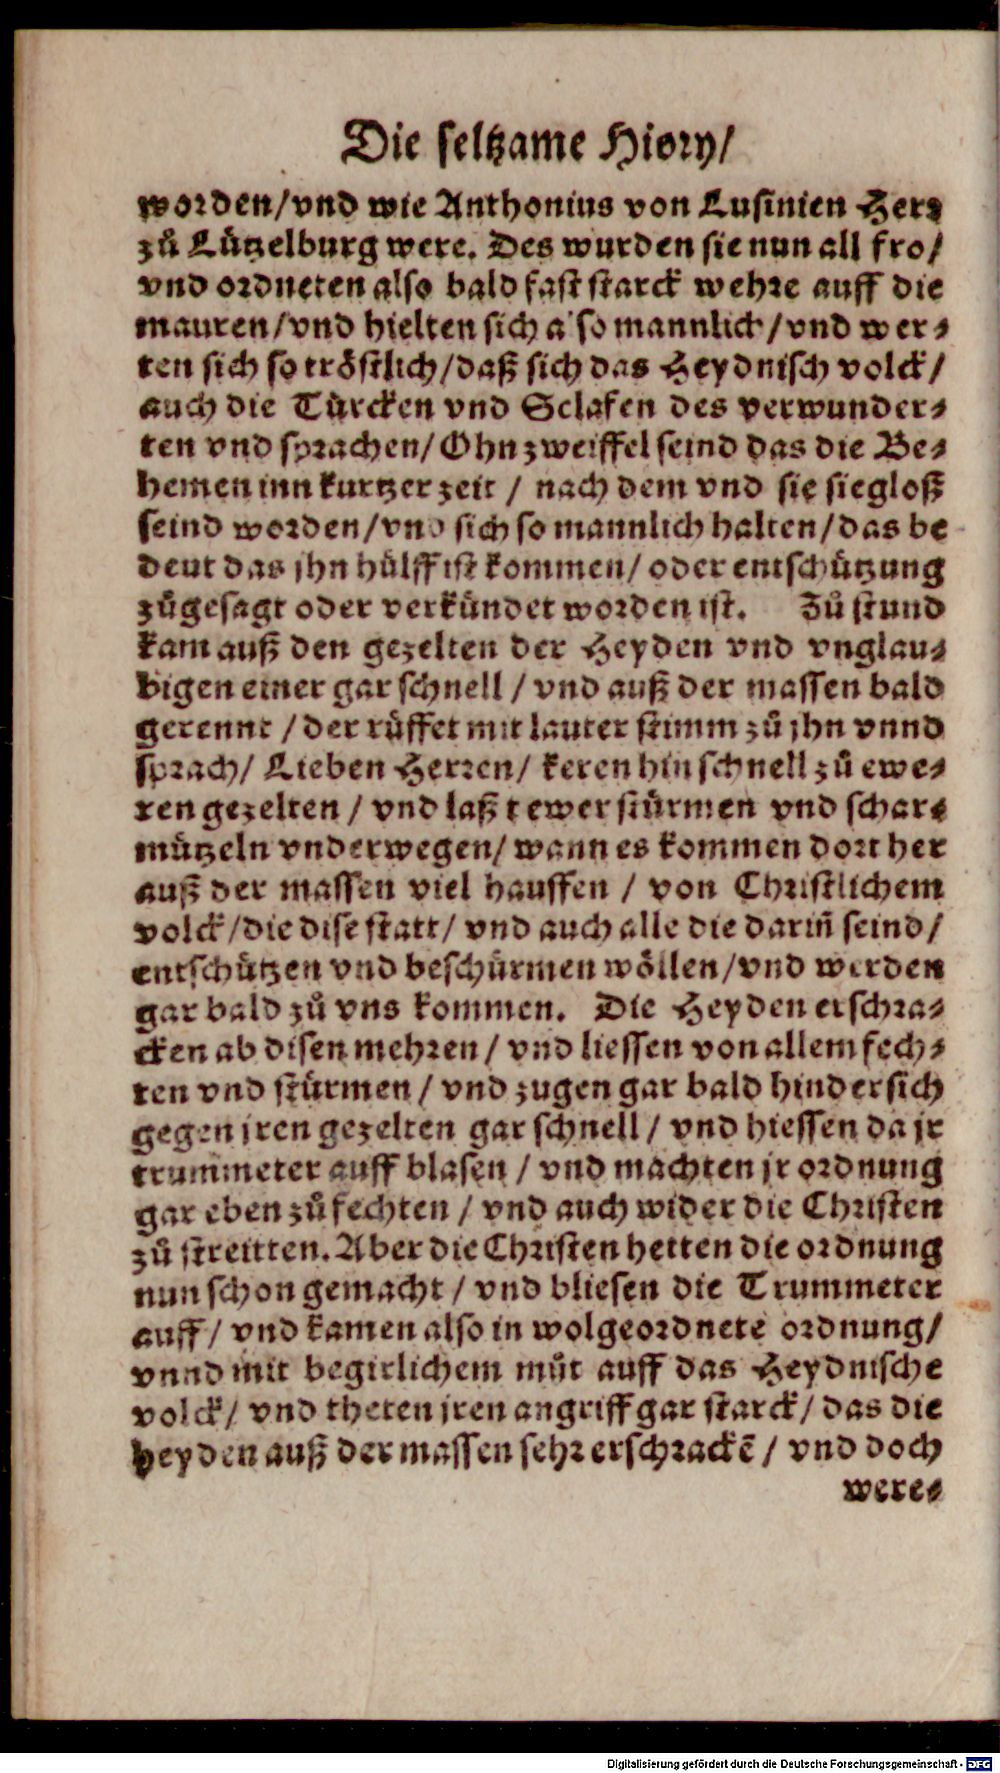 Die seltzame Hiory/
worden/vnd wie Anthonius von Lusinien Herꝛ
zů Lützelburg were. Des wurden sie nun all fro/
vnd ordneten also bald fast starck wehre auff die
mauren/vnd hielten sich also mannlich/vnd wer⸗
ten sich so tröstlich/daß sich das Heydnisch volck/
auch die Türcken vnd Sclafen des verwunder⸗
ten vnd sprachen/Ohn zweiffel seind das die Be⸗
hemen inn kurtzer zeit / nach dem vnd sie siegloß
seind worden/vnd sich so mannlich halten/das be
deut das jhn hülff ist kommen/ oder entschützung
zůgesagt oder verkündet worden ist. Zů stund
kam auß den gezelten der Heyden vnd vnglau⸗
bigen einer gar schnell / vnd auß der massen bald
gerennt / der růffet mit lauter stimm zů jhn vnnd
sprach/ Lieben Herren/ keren hin schnell zů ewe⸗
ren gezelten / vnd laßt ewer stürmen vnd schar⸗
mützeln vnderwegen/ wann es kommen dort her
auß der massen viel hauffen / von Christlichem
volck/die dise statt/ vnd auch alle die dariñ seind/
entschützen vnd beschürmen wöllen/vnd werden
gar bald zů vns kommen. Die Heyden erschra⸗
cken ab disen mehren/ vnd liessen von allem fech⸗
ten vnd stürmen / vnd zugen gar bald hindersich
gegen jren gezelten gar schnell / vnd hiessen da jr
trummeter auff blasen / vnd machten jr ordnung
gar eben zů fechten / vnd auch wider die Christen
zů streitten. Aber die Christen hetten die ordnung
nun schon gemacht / vnd bliesen die Trummeter
auff/ vnd kamen also in wolgeordnete ordnung/
vnnd mit begirlichem můt auff das Heydnische
volck/ vnd theten jren angriff gar starck/ das die
heyden auß der massen sehr erschrackē / vnd doch
were⸗
Digitalisierung gefördert durch die Deutsche Forschungsgemeinschaft - DFG